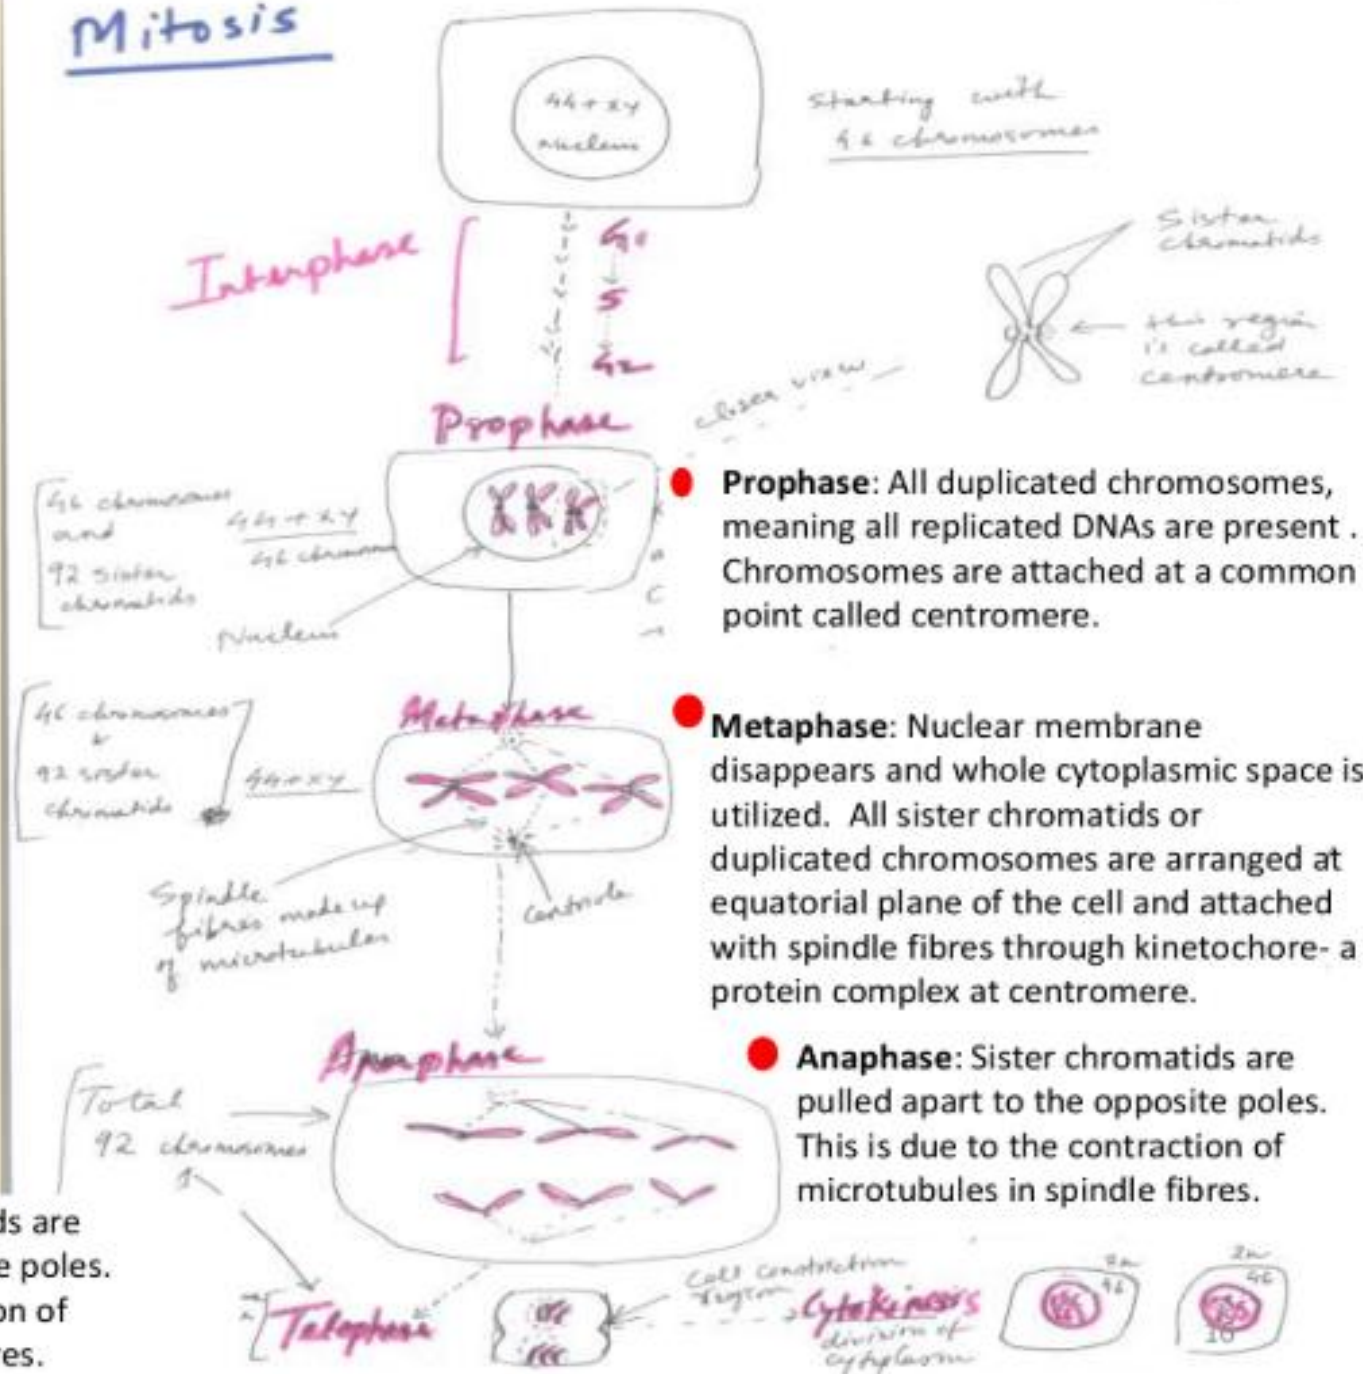 Mitosis
44+xy
nucleus
Starting with
46 chromosomes
Interphase
G1
S
G2
Sister
chromatids
this region
is called
centromere
closer view
Prophase
46 chromosomes
and
92 sister
chromatids
44+xy
46 chromosomes
Nucleus
Prophase: All duplicated chromosomes,
meaning all replicated DNAs are present .
Chromosomes are attached at a common
point called centromere.
Metaphase
46 chromosomes
92 sister
chromatids
44+xy
Spindle
fibres made up
of microtubules
Centriole
Metaphase: Nuclear membrane
disappears and whole cytoplasmic space is
utilized. All sister chromatids or
duplicated chromosomes are arranged at
equatorial plane of the cell and attached
with spindle fibres through kinetochore- a
protein complex at centromere.
Anaphase
Total
92 chromosomes
Anaphase: Sister chromatids are
pulled apart to the opposite poles.
This is due to the contraction of
microtubules in spindle fibres.
ds are
e poles.
on of
res.
Telophase
Cell constriction
region
Cytokinesis
division of
cytoplasm
2n
46
2n
46
16